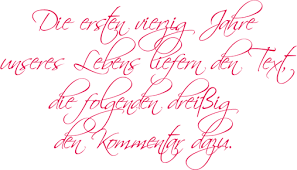 Die ersten vierzig Jahre
unseres Lebens liefern den Text,
die folgenden dreißig
den Kommentar dazu.